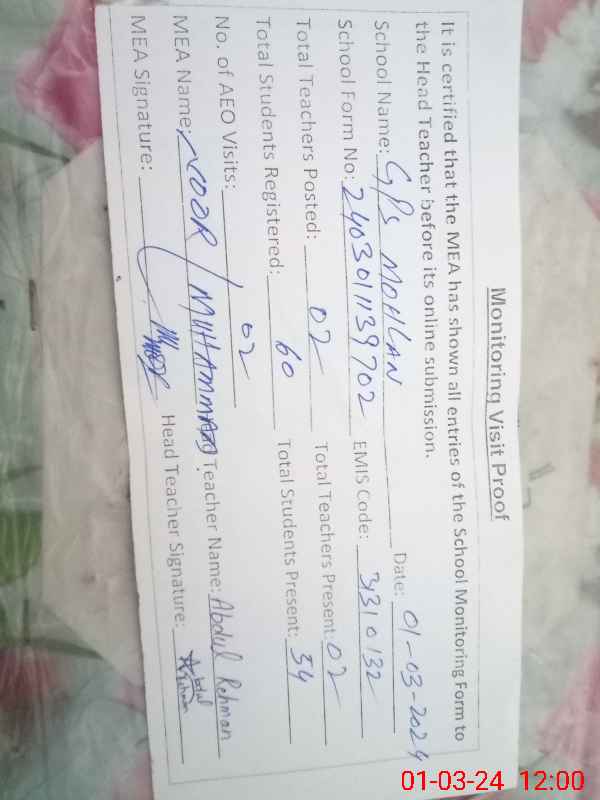 Monitoring Visit Proof
It is certified that the MEA has shown all entries of the School Monitoring Form to
the Head Teacher before its online submission.
Date: 01-03-2024
School Name: GPS MOHLAN
School Form No: 2403011139702 EMIS Code: 31310132
Total Teachers Posted: 02 Total Teachers Present: 02
Total Students Registered: 60 Total Students Present: 54
No. of AEO Visits: 02
MEA Name: NOOR MUHAMMAD Teacher Name: Abdul Rehman
MEA Signature: Head Teacher Signature: Abdul Rehman
01-03-24 12:00